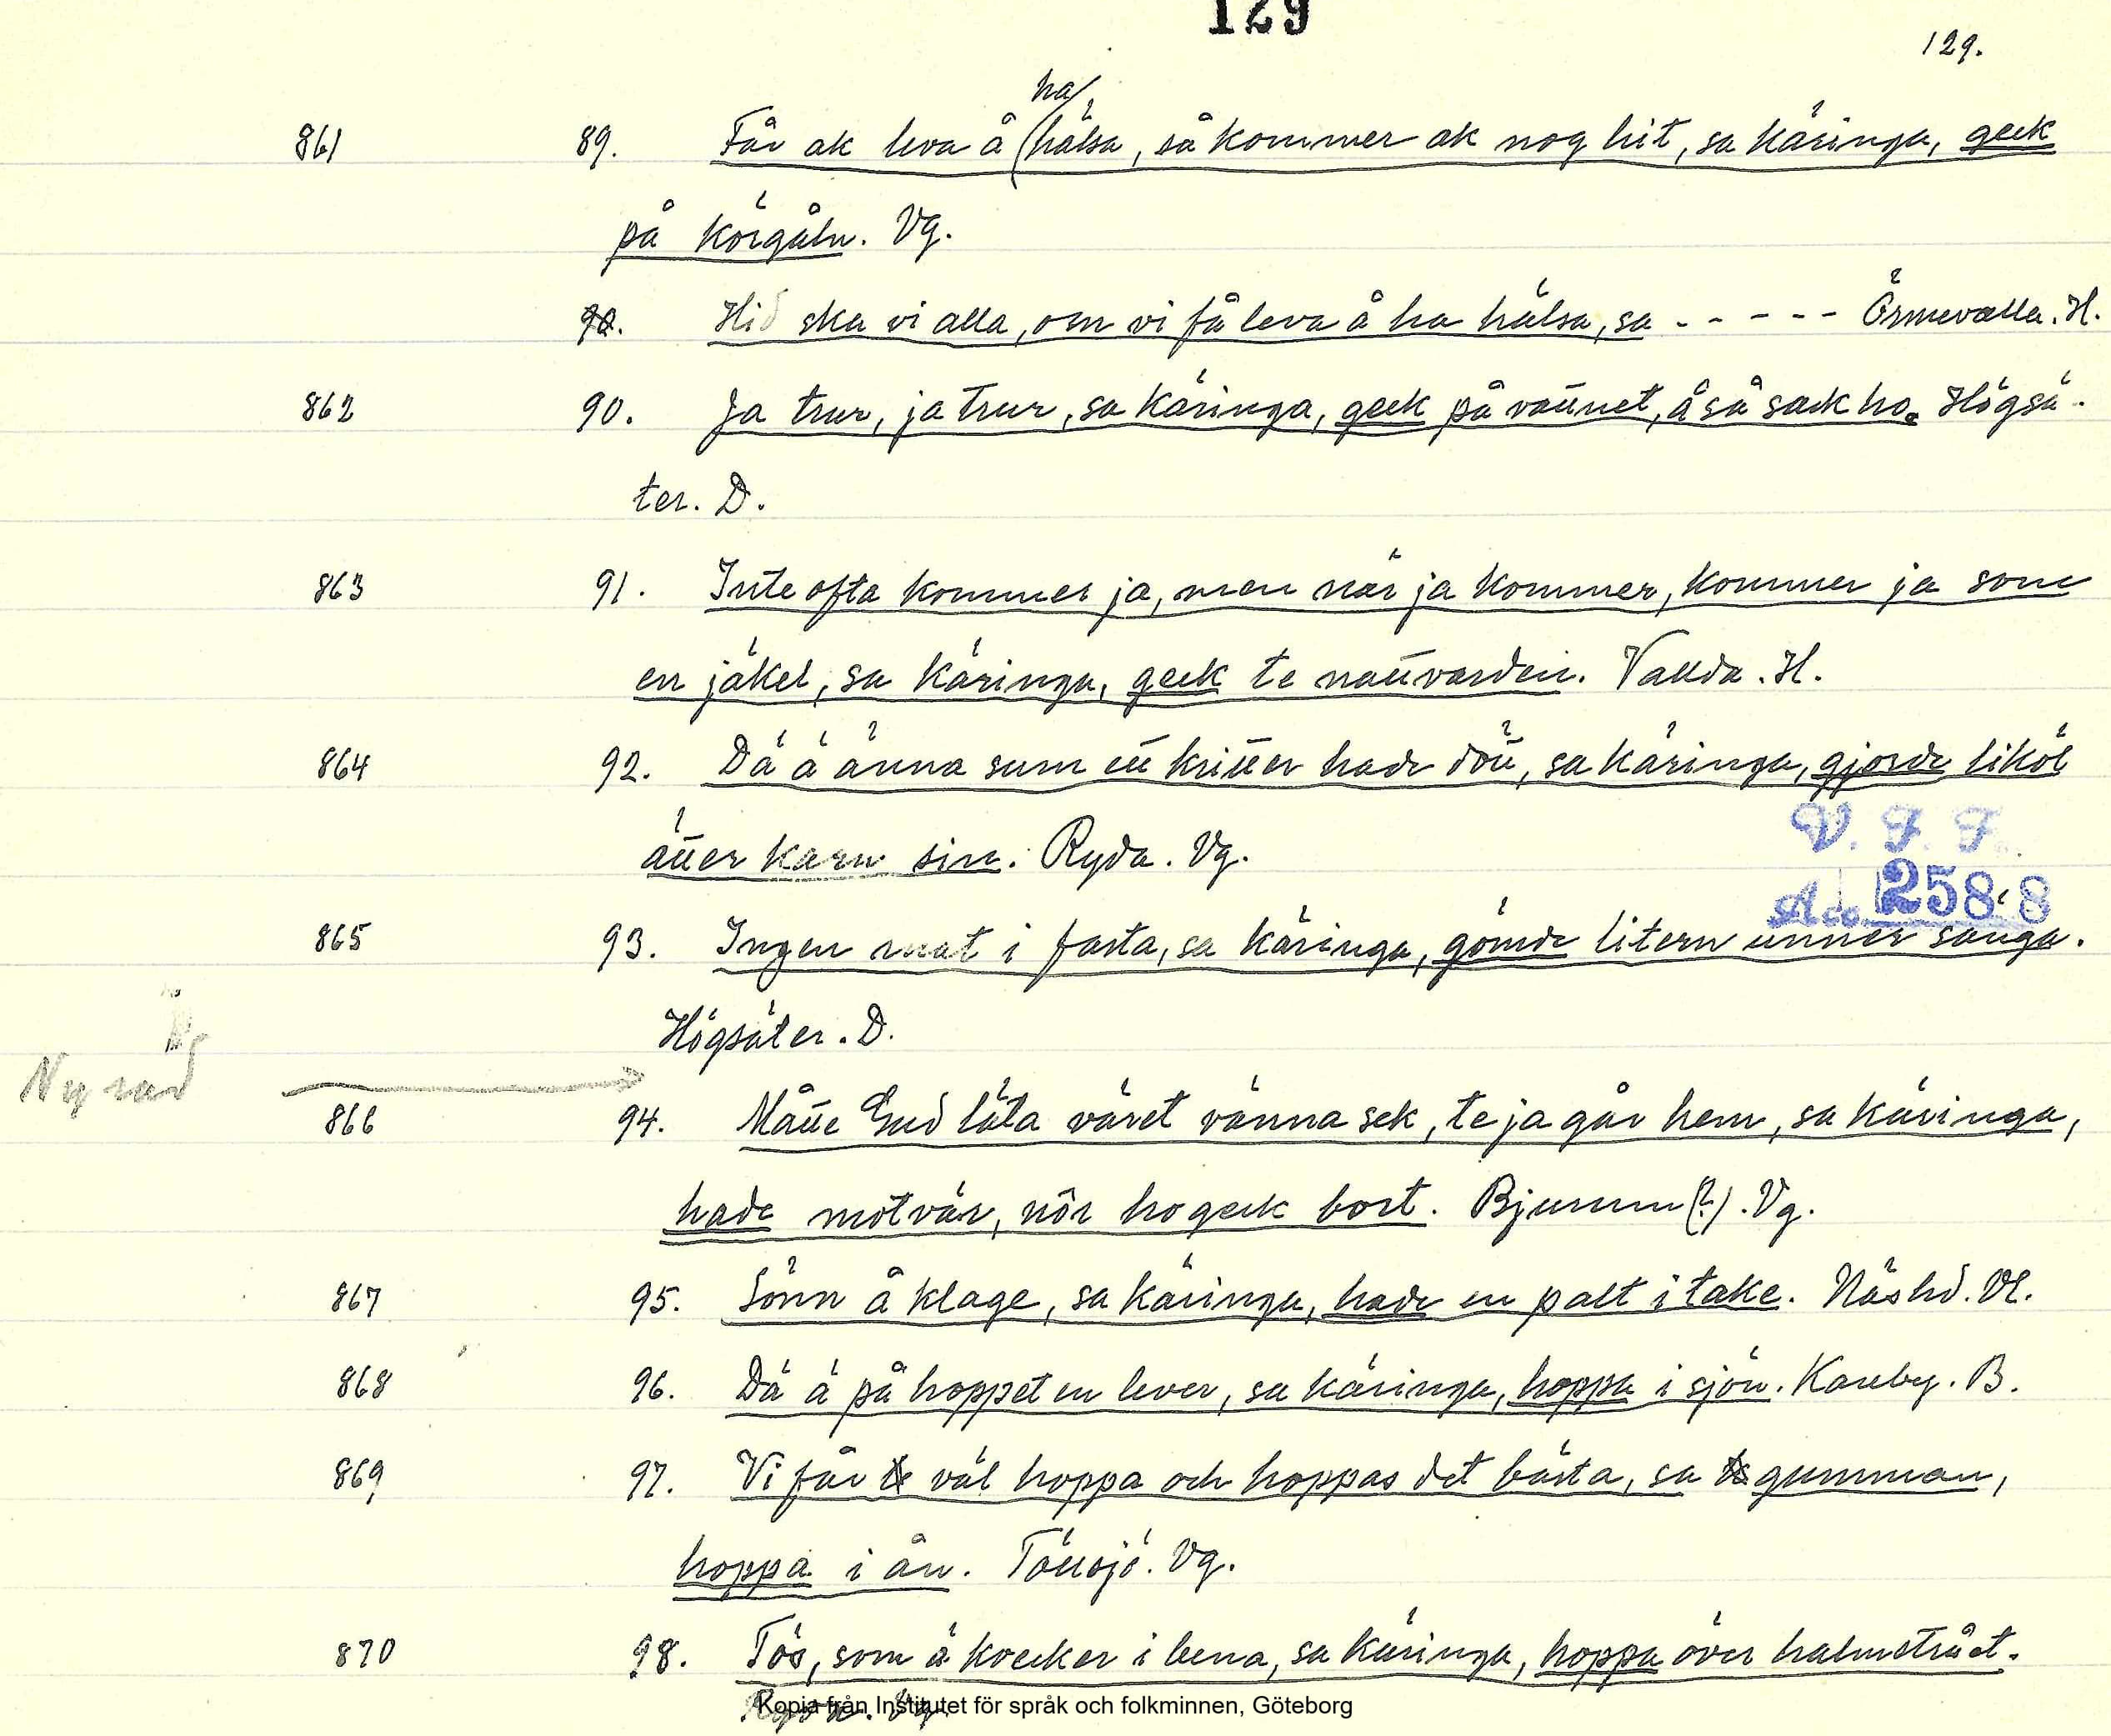 129
129.
ha
861 89. Får ak leva å hälsa, så kommer ak nog hit, sa käringa, geck
på körgåln. Vg.
90. Hid ska vi alla, om vi få leva å ha hälsa, sa - - - - - Örmevalla. H.
862 90. Ja trur, ja trur, sa käringa, geck på vaũnet, å så sack ho. Högsä-
ter. D.
863 91. Inte ofta kommer ja, men när ja kommer, kommer ja som
en jäkel, sa käringa, geck te naũvarden. Vallda. H.
864 92. Dä ä änna sum eũ kriũer hade döũ, sa käringa, gjorde liköl
äũer karn sin. Ryda. Vg.
V. F. F.
Acc. 258:8
865 93. Ingen mat i fasta, sa käringa, gömde litern unner sänga.
Högsäter. D.
Ny rad
866 94. Måũe Gud låta väret vänna sek, te ja går hem, sa käringa,
hade motvär, nör ho geck bort. Bjurum (?). Vg.
867 95. Sönn å klage, sa käringa, hade en palt i take. Näshd. Vl.
868 96. Dä ä på hoppet en lever, sa käringa, hoppa i sjön. Kareby. B.
869 97. Vi får väl hoppa och hoppas det bästa, sa gumman,
hoppa i ån. Töllsjö. Vg.
870 98. Tös, som ä kvecker i bena, sa käringa, hoppa över halmstrået.
Vg.
Kopia från Institutet för språk och folkminnen, Göteborg